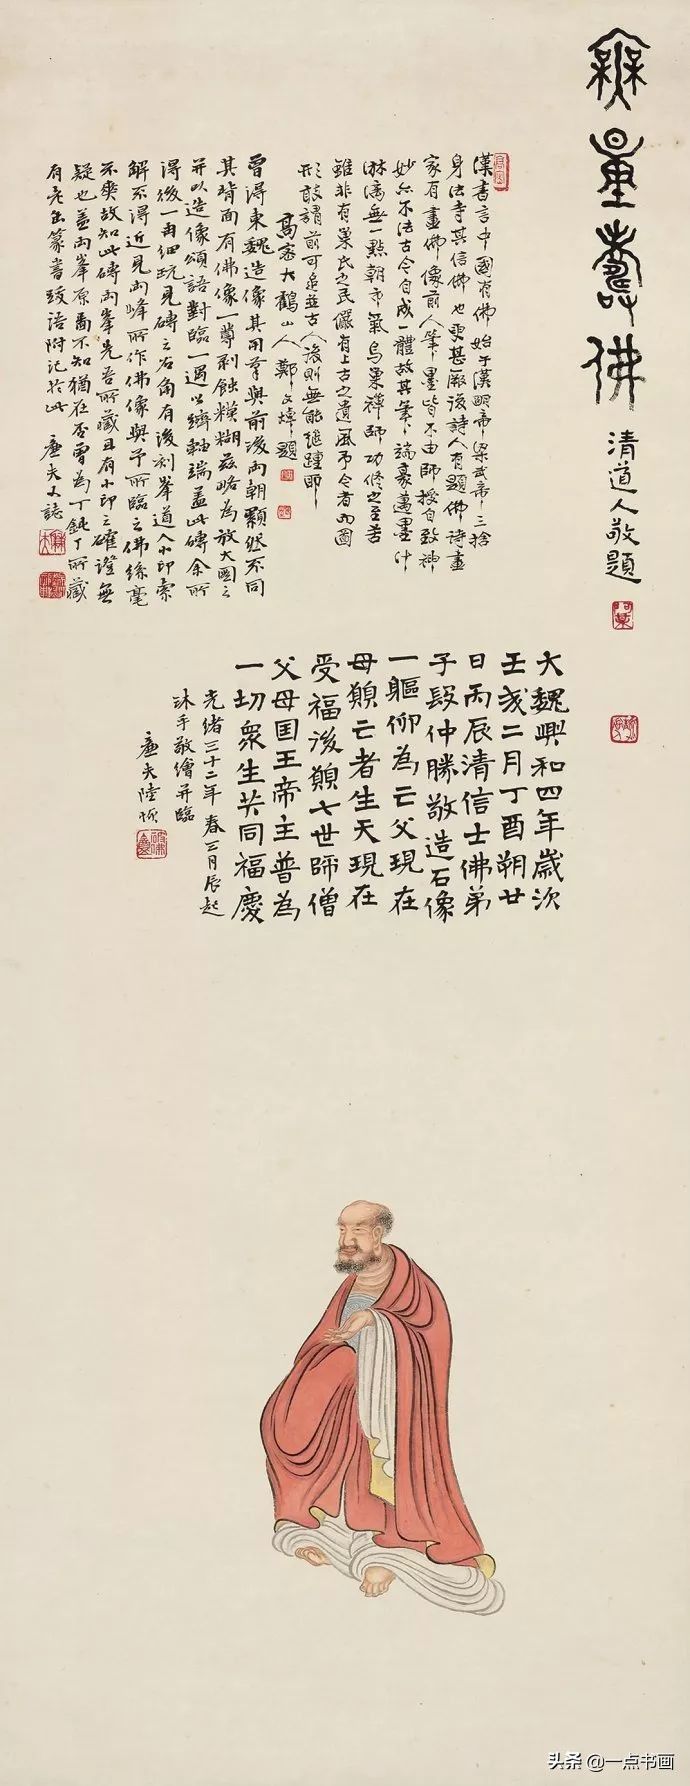 無量壽佛
清道人敬題
漢書言中國有佛始于漢明帝梁武帝三捨
身法寺其信佛也更甚厥後詩人有題佛詩畫
家有畫佛像前人筆墨皆不由師授自致神
妙亦不法古今自成一體故其筆端豪萬墨汁
淋漓無一點朝市氣鳥巢禪師功修之至苦
雖非有巢氏之民儼有上古之遺風予今者而圖
形敢謂前可追並古人後則無能繼踵耶
高密大鶴山人鄭文焯題
曾得東魏造像其用筆與前後兩朝顯然不同
其背面有佛像一尊剥蝕模糊茲略為放大圖之
并以造像頌語對臨一過以績軸端蓋此磚余所
得後一再細玩見磚之右角有後刻峯道人小印索
解不得近見兩峰所作佛像與予所臨之佛絲毫
不爽故知此磚兩峯先吾所藏且有小印之確證無
疑也蓋兩峯原畫不知猶在否曾為丁鈍丁所藏
有老缶篆書跋語附記於此 廉夫又誌
大魏興和四年歲次
壬戌二月丁酉朔廿
日丙辰清信士佛弟
子段仲勝敬造石像
一軀仰為亡父現在
母願亡者生天現在
受福後願七世師僧
父母国王帝主普為
一切衆生共同福慶
光緒三十二年春三月辰起
沐手敬繪并臨
廉夫陸恢
头条 @一点书画